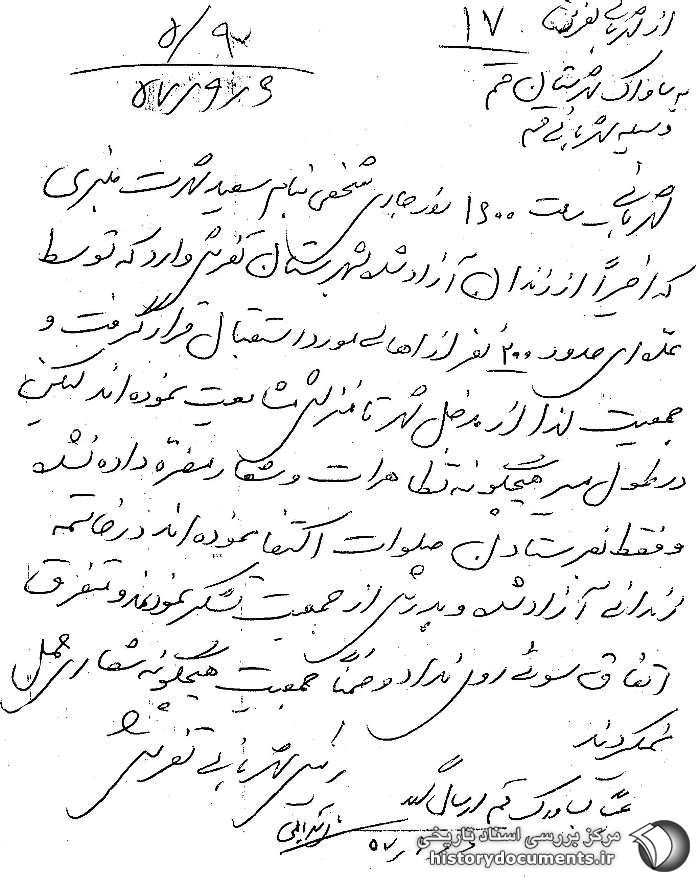 از شهربانی تفرش ۱۷
به ساواک شهرستان قم ۵/۹۰
وسیله شهربانی قم ۵۷/۹/۶
شهربانی ساعت ۱۶۰۰ روز جاری شخصی بنام سعید شهرت منبری
که اخیراً از زندان آزاد شده بشهرستان تفرش وارد که توسط
عده‌ای حدود ۲۰۰ نفر از اهالی مورد استقبال قرار گرفت و
جمعیت لذا از مدخل شهر تا منزلش مشایعت نموده‌اند لیکن
در طول مسیر هیچگونه تظاهرات و شعار مضره داده نشده
و فقط بفرستادن صلوات اکتفا نموده‌اند در خاتمه
زندانی آزاد شده و پدرش از جمعیت تشکر نمودند و متفرق
اتفاق سوئی روی نداد و ضمناً جمعیت هیچگونه شعاری حمل
نمیکردند
رئیس شهربانی تفرش
عیناً بساواک قم ارسال گردد
مرکز بررسی اسناد تاریخی
historydocuments.ir